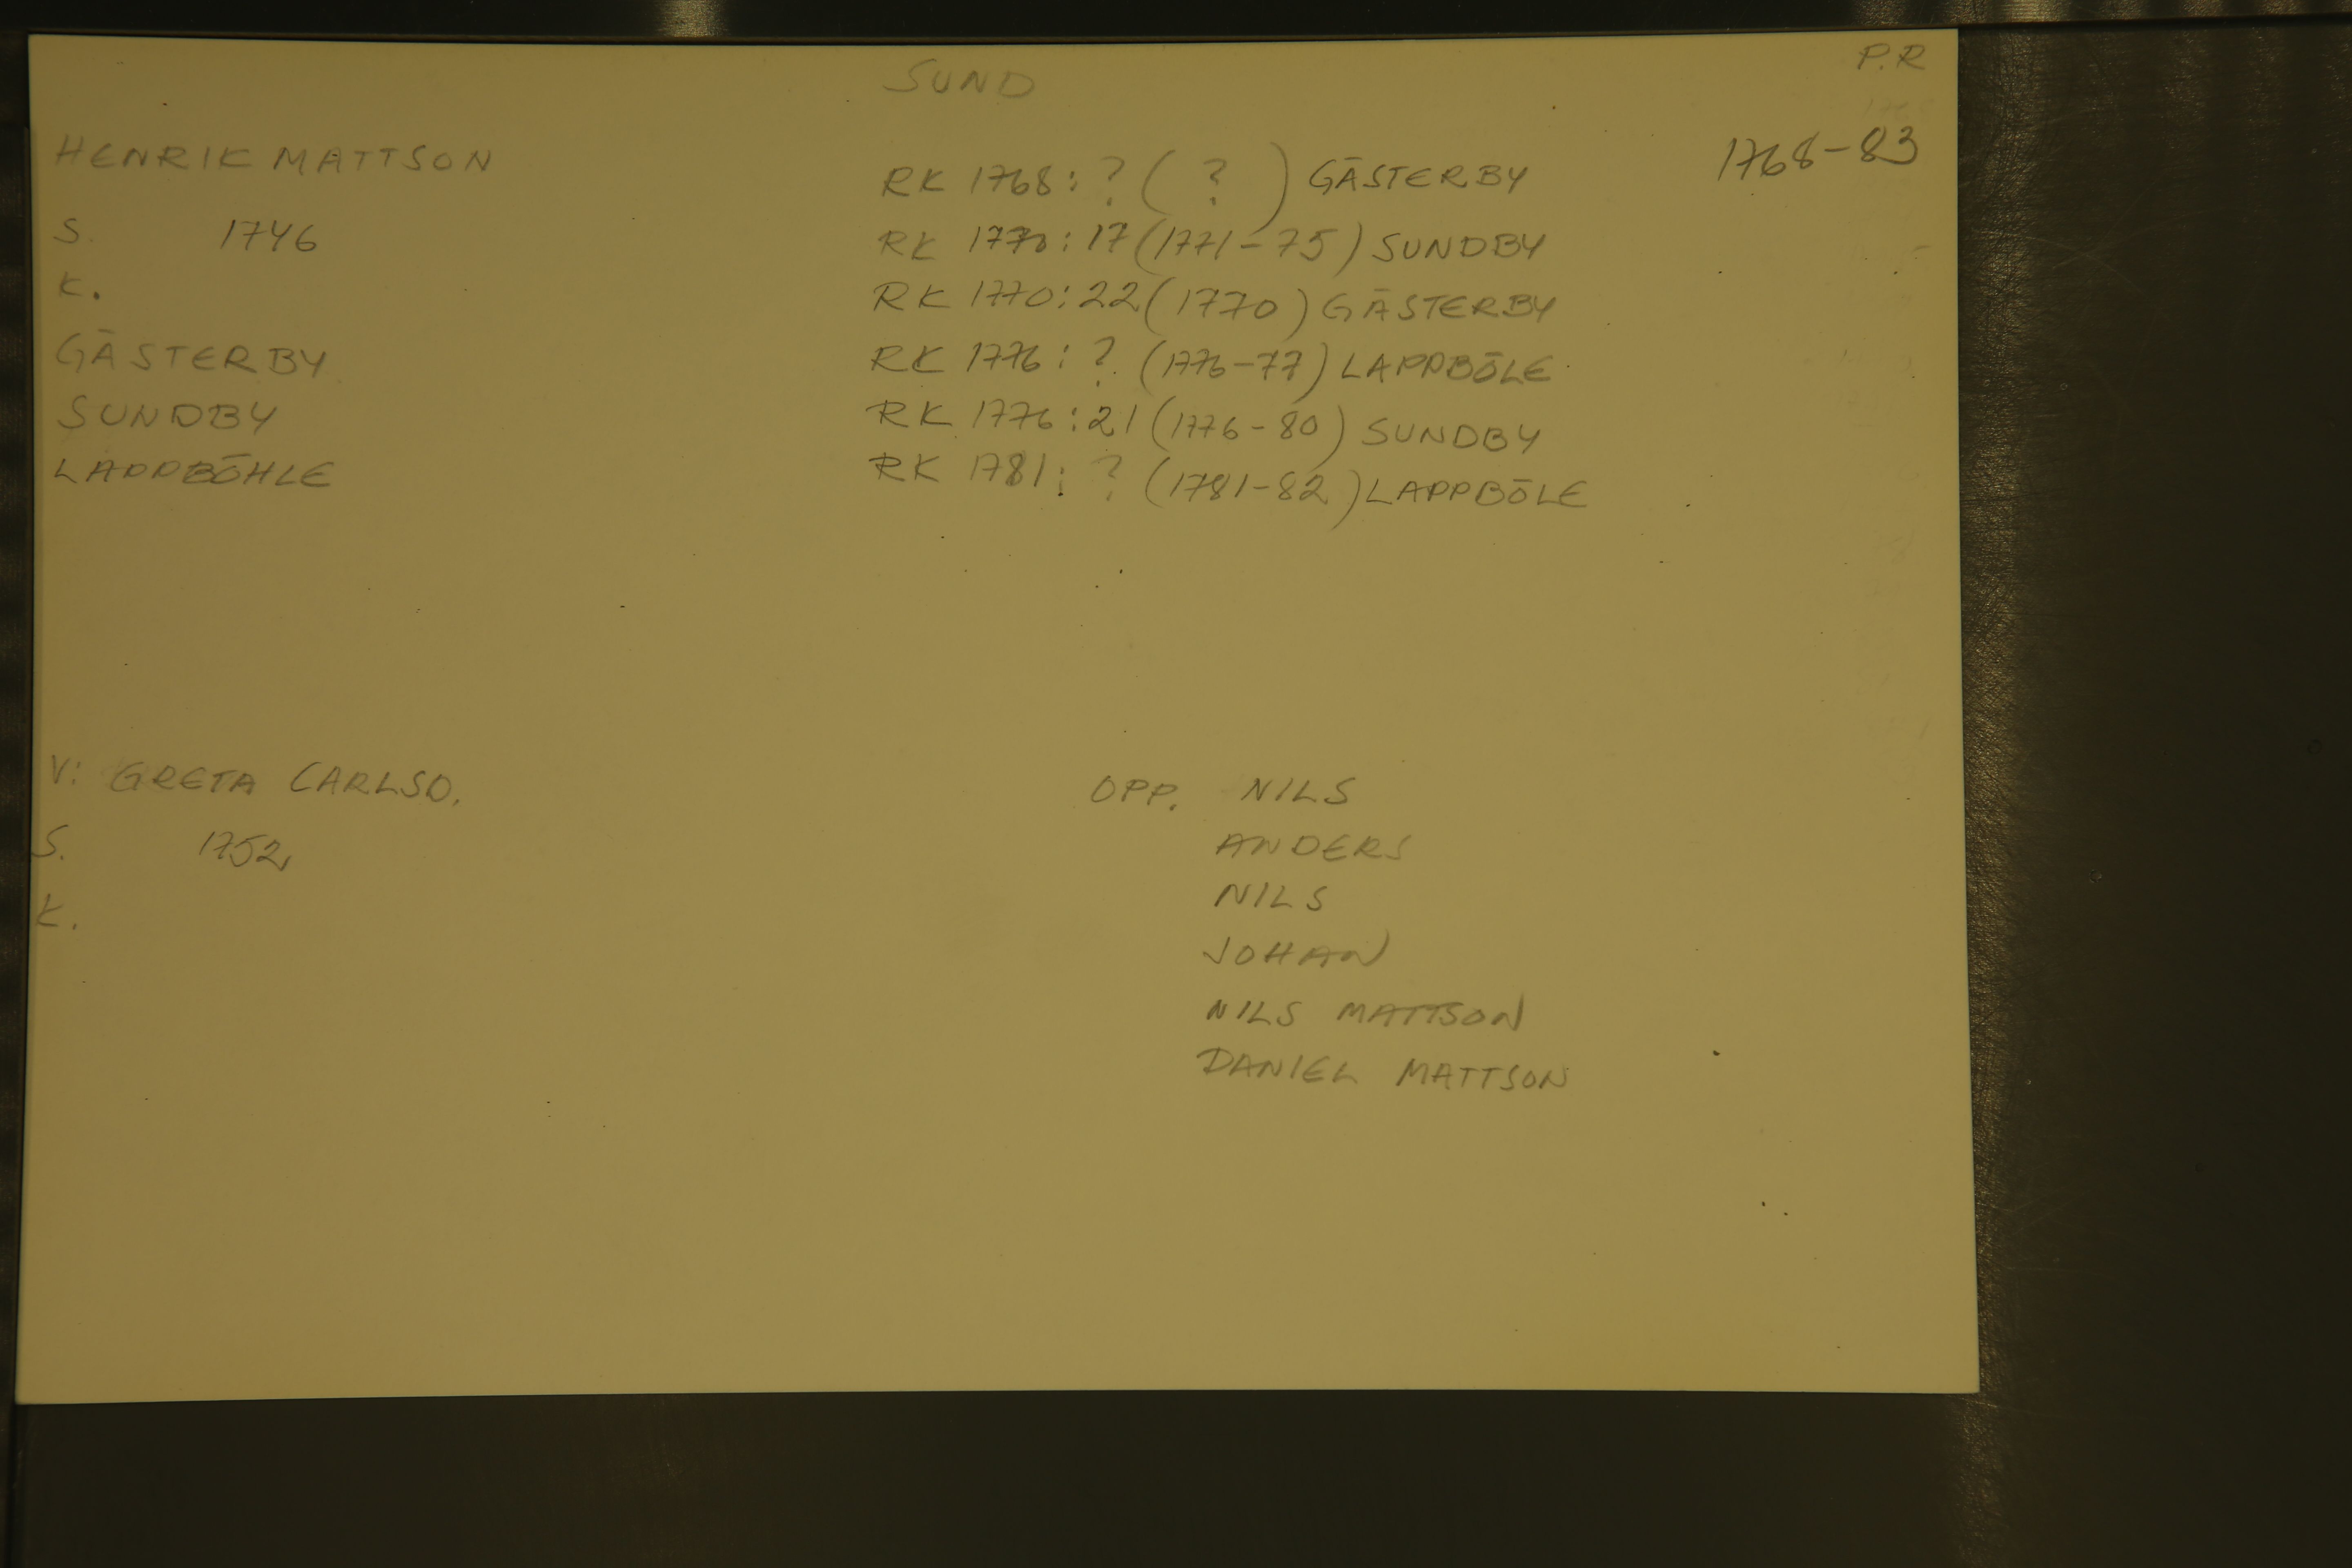 SUND
P.R
HENRIK MATTSON
S. 1746
K.
GÄSTERBY
SUNDBY
LAPPBÖHLE
RK 1768: ? ( ? ) GÄSTERBY
RK 1770: 17 (1771-75) SUNDBY
RK 1770: 22 (1770) GÄSTERBY
RK 1776: ? (1776-77) LAPPBÖLE
RK 1776: 21 (1776-80) SUNDBY
RK 1781: ? (1781-82) LAPPBÖLE
1768-83
V: GRETA CARLSD.
S. 1752
K.
OPP. NILS
ANDERS
NILS
JOHAN
NILS MATTSON
DANIEL MATTSON